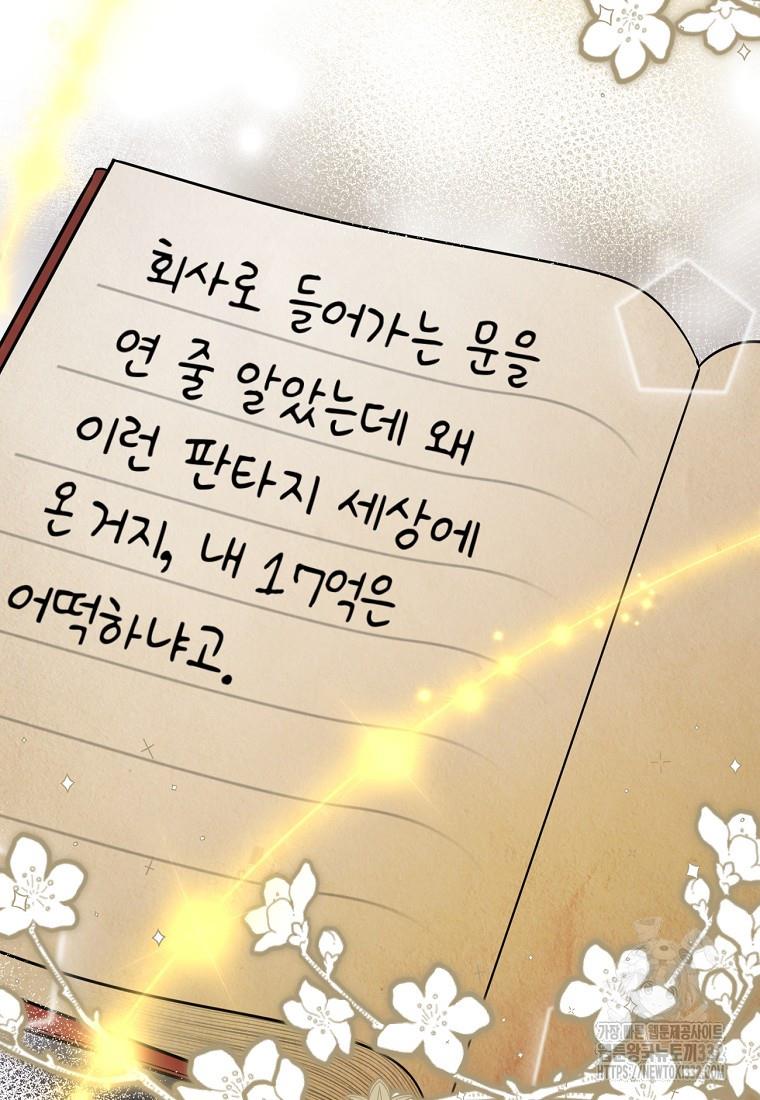 회사로 들어가는 문을
연 줄 알았는데 왜
이런 판타지 세상에
온 거지, 내 17억은
어떡하냐고.
가장 빠른 웹툰제공사이트
웹툰왕국뉴토끼332
HTTPS://NEWTOKI332.COM